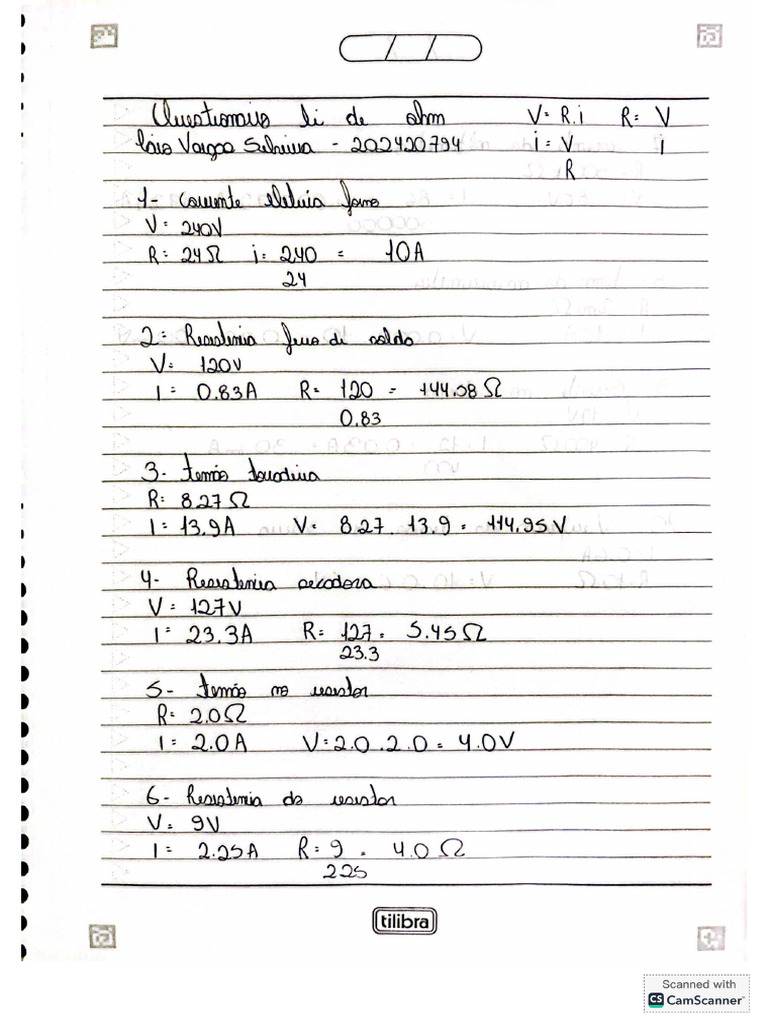 Questionario li de ohm V= R.i R= V
Vargas - 202420794 i = V i
R
1- corrente eletrica forno
V= 240V
R= 24Ω i= 240 = 10A
24
2- Resistencia ferro di solda
V= 120V
I = 0.83A R= 120 = 144.08 Ω
0.83
3- tensão torradeira
R= 8.27 Ω
I= 13.9A V= 8.27 . 13.9 = 114.95 V
4- Resistencia secadora
V= 127V
I= 23.3A R= 127 = 5.45 Ω
23.3
5- tensão no resistor
R= 2.0Ω
I= 2.0A V= 2.0 . 2.0 = 4.0V
6- Resistencia do resistor
V= 9V
I= 2.25A R= 9 = 4.0 Ω
2.25
tilibra
Scanned with
CS CamScanner